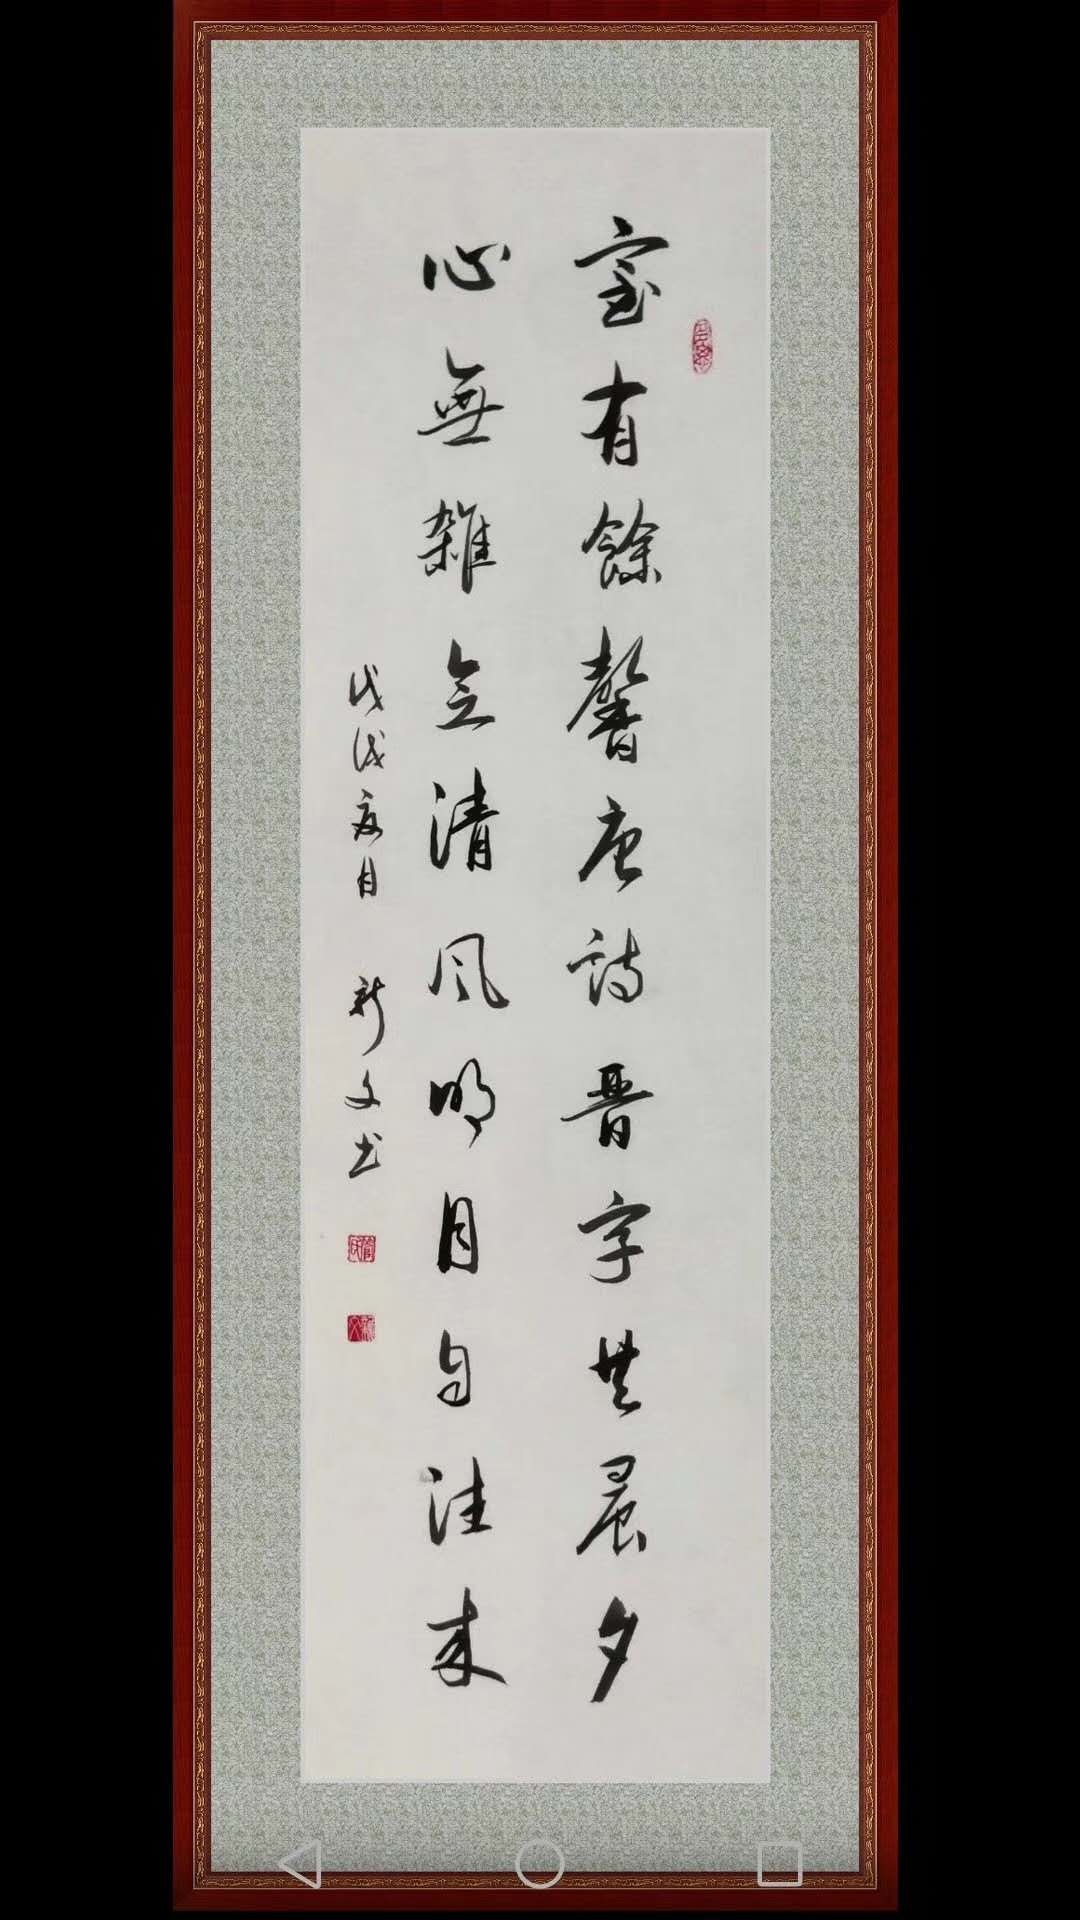 室有餘馨唐詩晋字共晨夕
心無雜念清风明月自往来
戊戌夏月 新文书